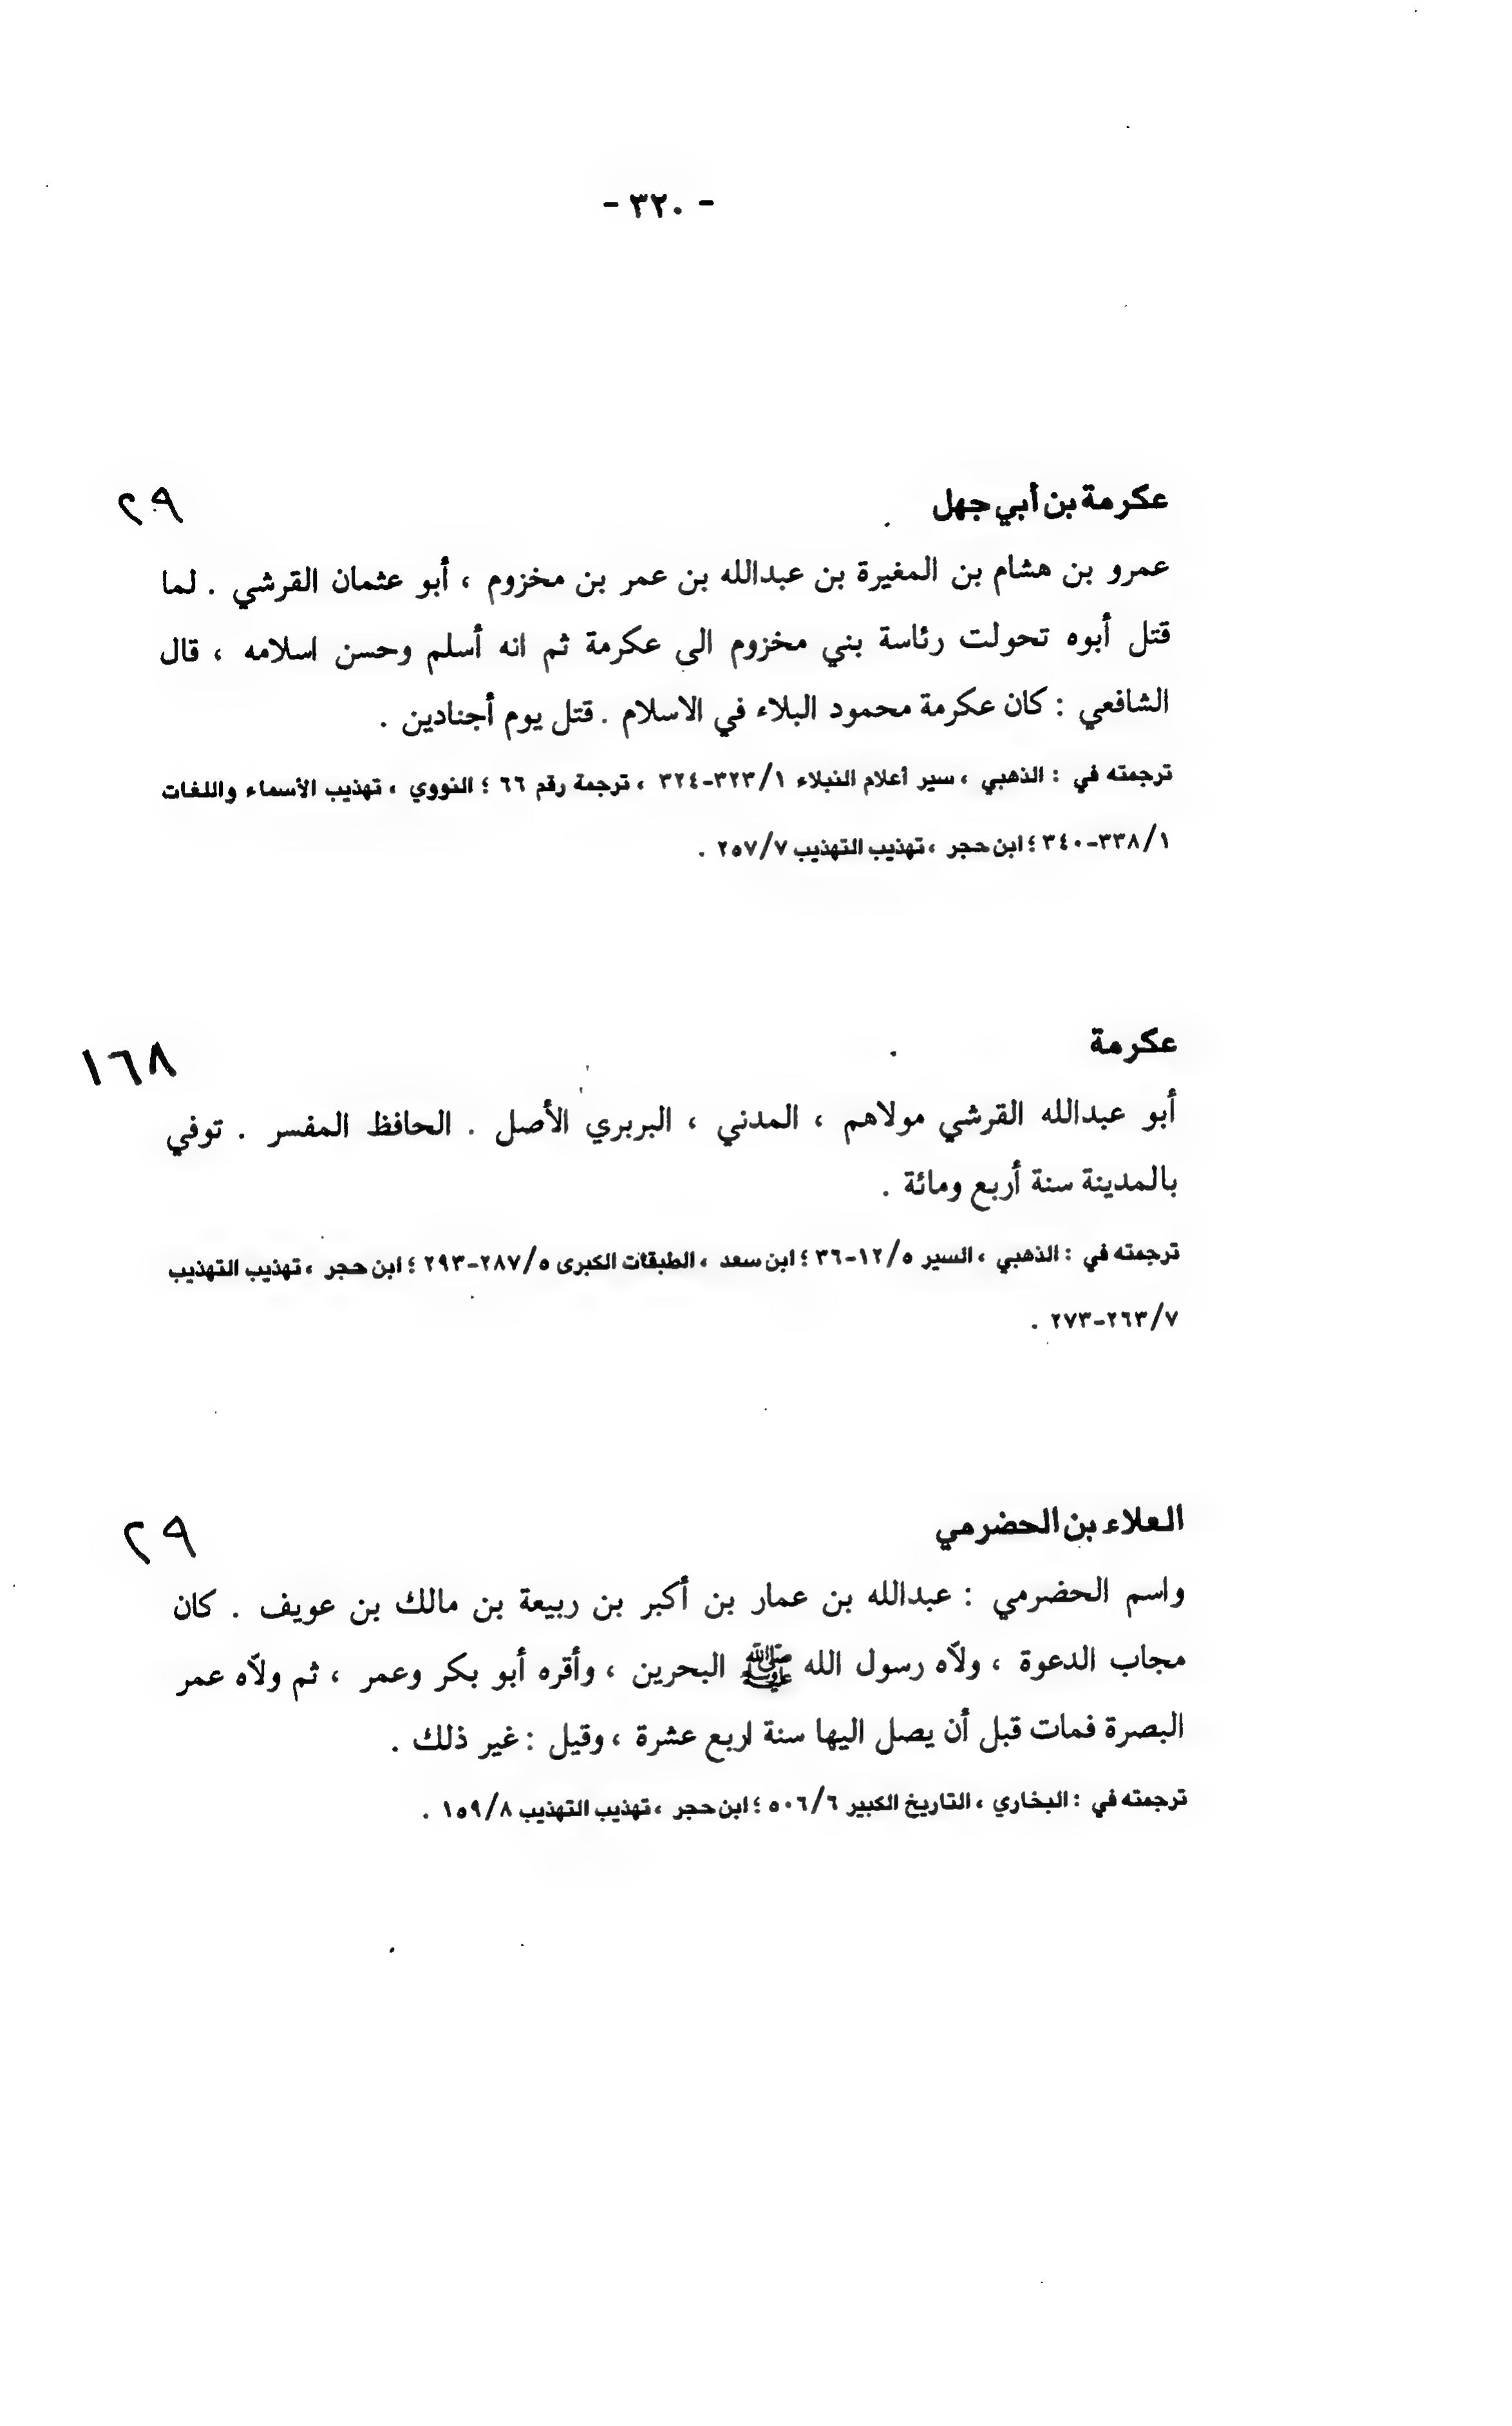 - ٣٢٠ -
عكرمة بن أبي جهل ٢٩
عمرو بن هشام بن المغيرة بن عبدالله بن عمر بن مخزوم ، أبو عثمان القرشي . لما
قتل أبوه تحولت رئاسة بني مخزوم الى عكرمة ثم انه أسلم وحسن اسلامه ، قال
الشافعي : كان عكرمة محمود البلاء في الاسلام . قتل يوم أجنادين .
ترجمته في : الذهبي ، سير أعلام النبلاء ٣٢٣/١-٣٢٤ ، ترجمة رقم ٦٦ ؛ النووي ، تهذيب الأسماء واللغات
٣٣٨/١-٣٤٠ ؛ ابن حجر ، تهذيب التهذيب ٢٥٧/٧ .
عكرمة ١٦٨
أبو عبدالله القرشي مولاهم ، المدني ، البربري الأصل . الحافظ المفسر . توفي
بالمدينة سنة أربع ومائة .
ترجمته في : الذهبي ، السير ١٢/٥-٣٦ ؛ ابن سعد ، الطبقات الكبرى ٢٨٧/٥-٢٩٣ ؛ ابن حجر ، تهذيب التهذيب
٢٦٣/٧-٢٧٣ .
العلاء بن الحضرمي ٢٩
واسم الحضرمي : عبدالله بن عمار بن أكبر بن ربيعة بن مالك بن عويف . كان
مجاب الدعوة ، ولاّه رسول الله ﷺ البحرين ، وأقره أبو بكر وعمر ، ثم ولاّه عمر
البصرة فمات قبل أن يصل اليها سنة اربع عشرة ، وقيل : غير ذلك .
ترجمته في : البخاري ، التاريخ الكبير ٥٠٦/٦ ؛ ابن حجر ، تهذيب التهذيب ١٥٩/٨ .